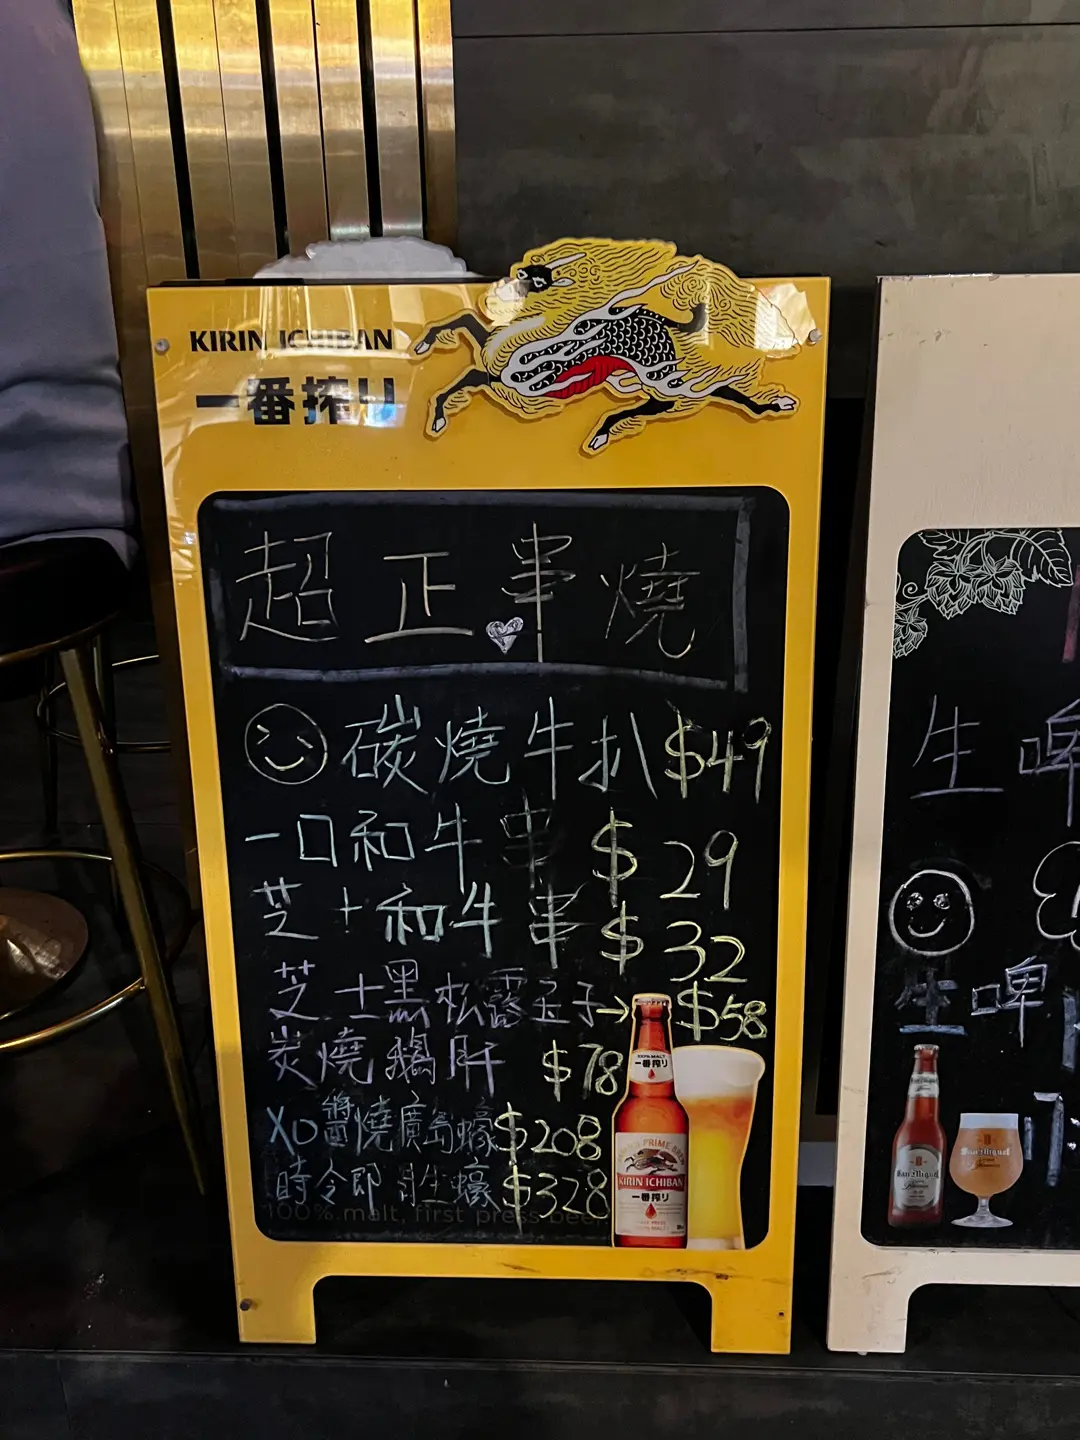 KIRIN ICHIBAN
一番搾り
超正串燒
碳燒牛扒 $49
一口和牛串 $29
芝士和牛串 $32
芝士黑松露玉子→ $58
炭燒鵝肝 $78
XO醬燒廣島蠔 $208
時令即開生蠔 $328
100% malt, first press beer
100% MALT
一番搾り
KIRIN ICHIBAN
一番搾り
生啤
生啤
San Miguel
San Miguel